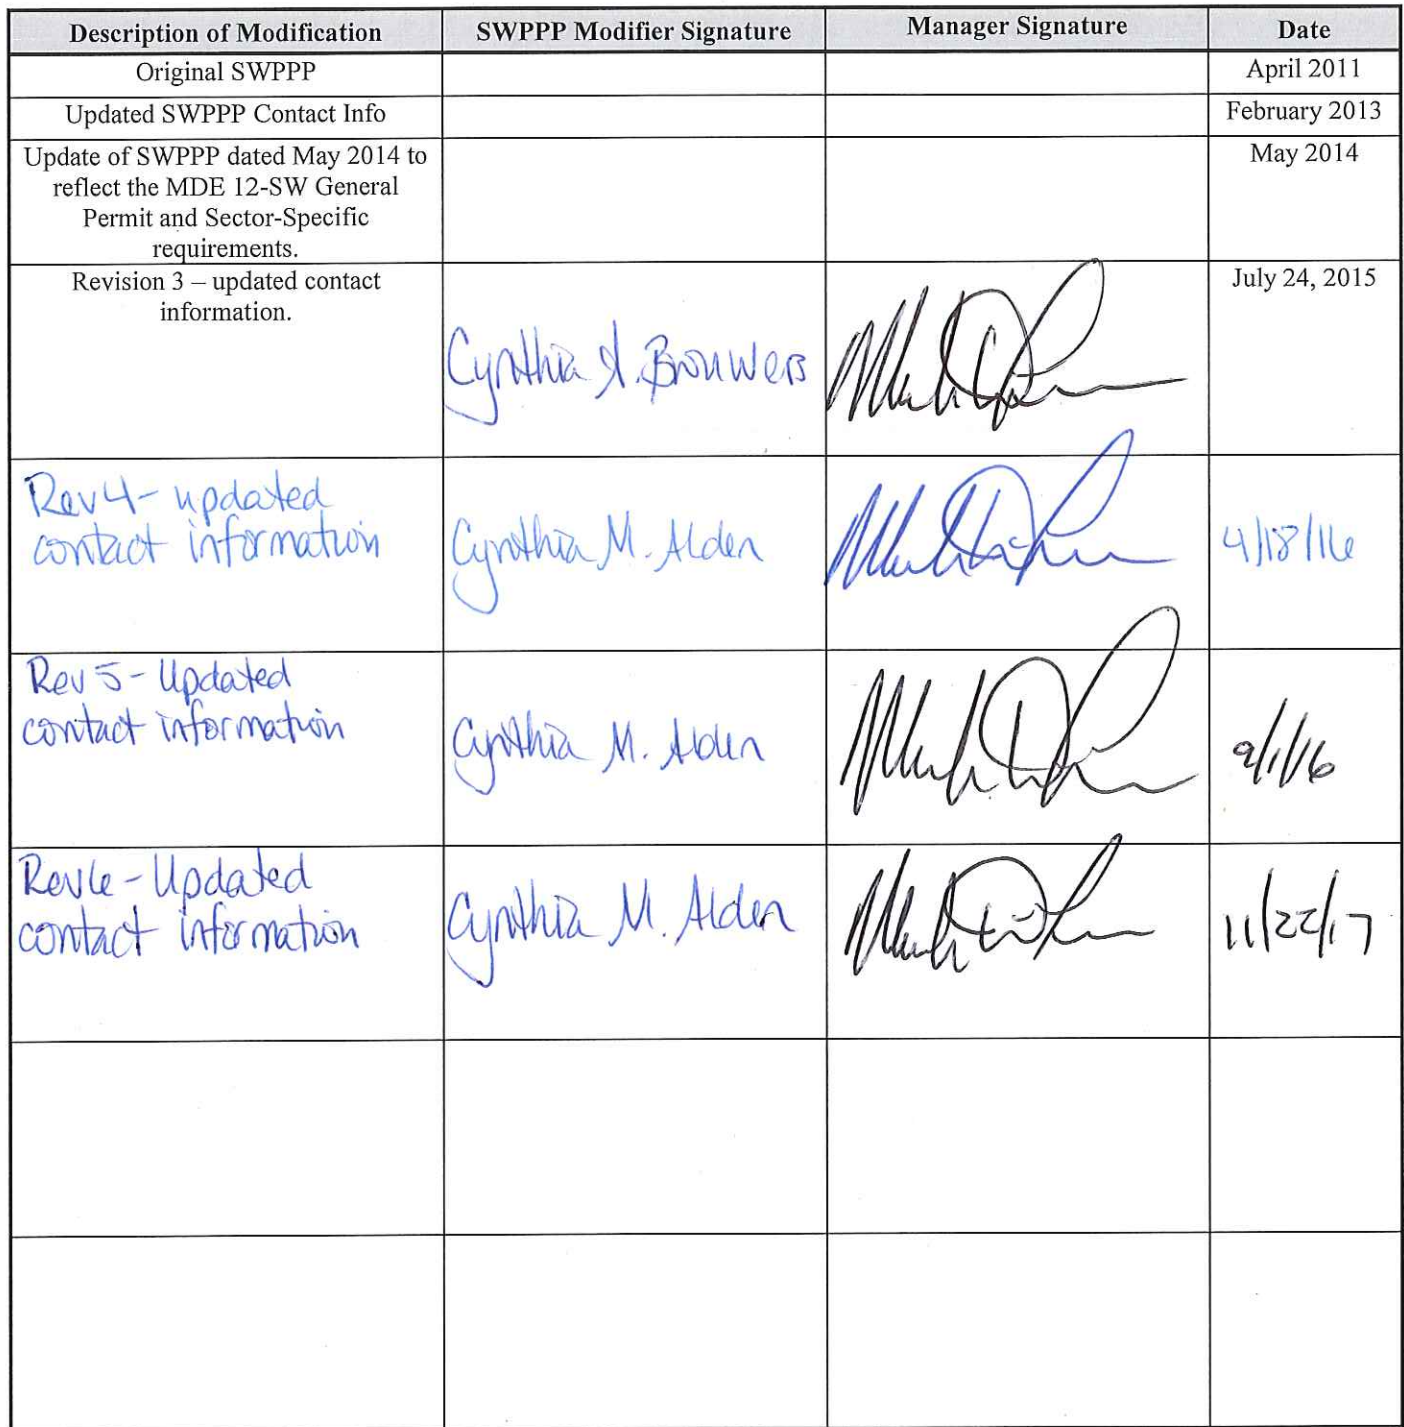 Description of Modification SWPPP Modifier Signature Manager Signature Date
Original SWPPP April 2011
Updated SWPPP Contact Info February 2013
Update of SWPPP dated May 2014 to May 2014
reflect the MDE 12-SW General
Permit and Sector-Specific
requirements.
Revision 3 – updated contact July 24, 2015
information.
Cynthia A. Brouwers
Rev 4- updated
contact information Cynthia M. Alden 4/18/16
Rev 5- Updated
contact information Cynthia M. Alden 9/1/16
Rev 6- Updated
contact information Cynthia M. Alden 11/22/17